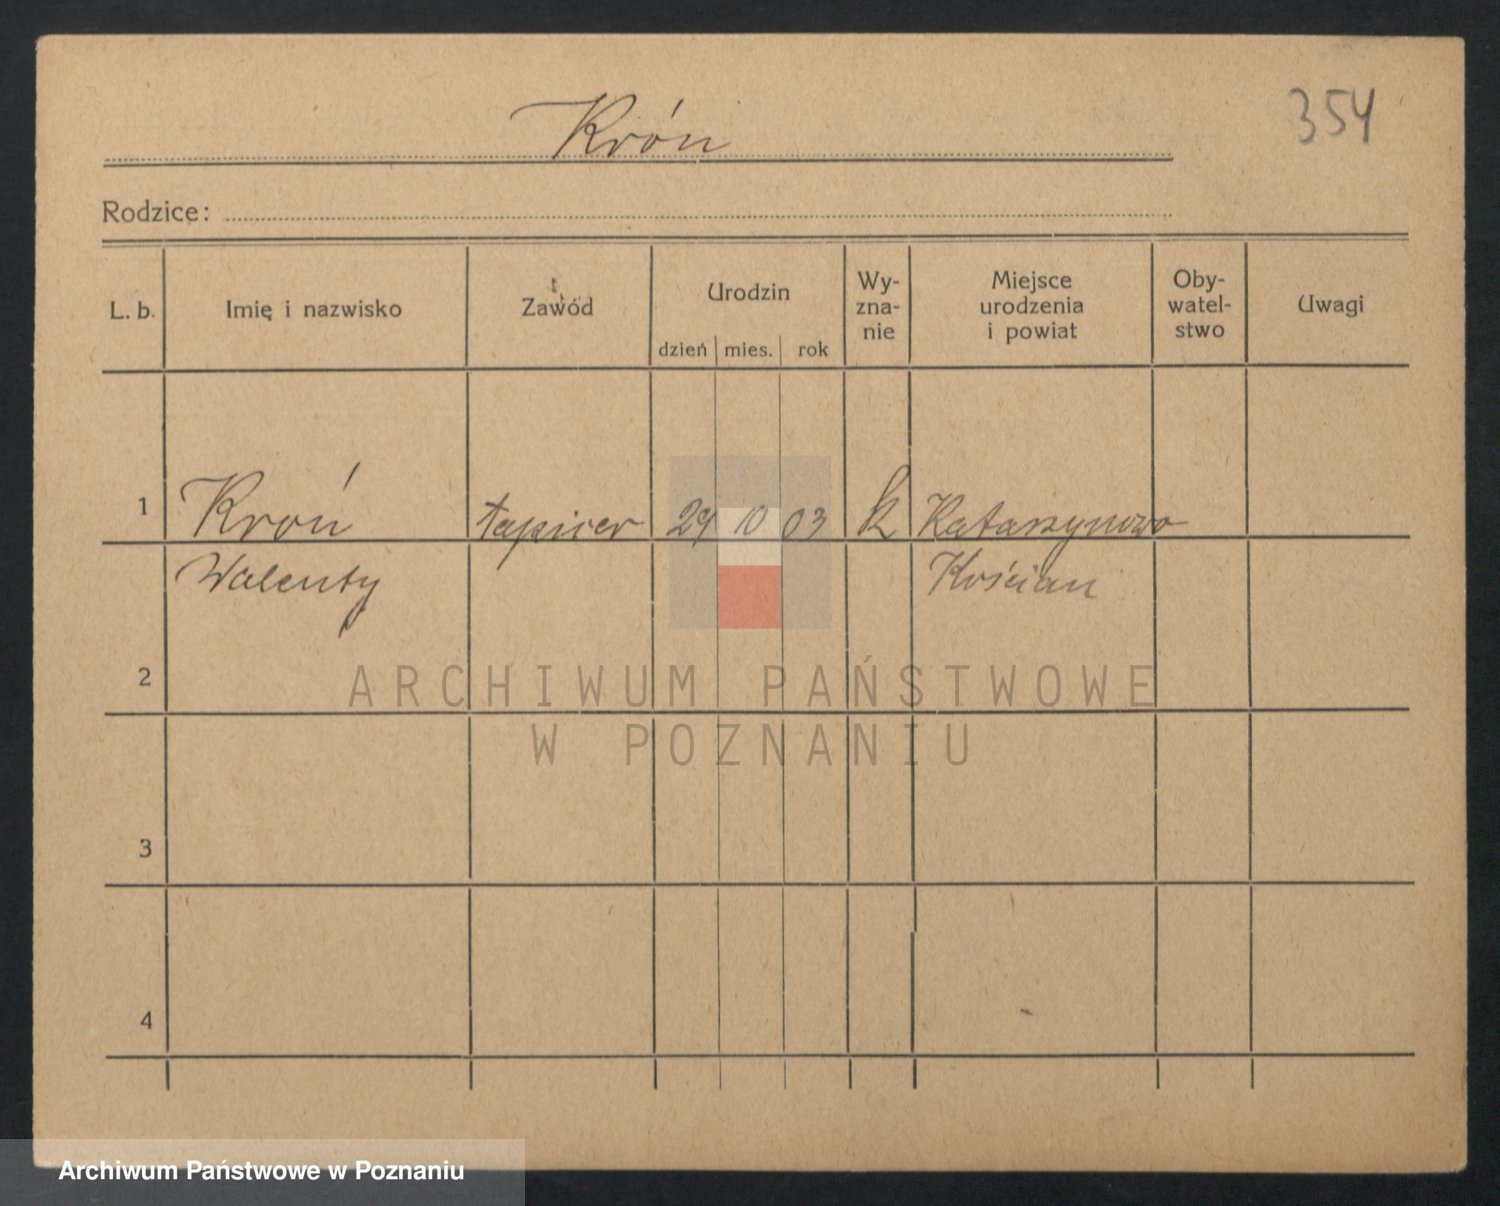 Krón
354
Rodzice:
L. b.
Imię i nazwisko
Zawód
Urodzin
dzień mies. rok
Wy-
zna-
nie
Miejsce
urodzenia
i powiat
Oby-
watel-
stwo
Uwagi
1 Kroń tapicer 29 10 03 k Katarzynowo
Walenty Kościan
2
3
4
ARCHIWUM PAŃSTWOWE
W POZNANIU
Archiwum Państwowe w Poznaniu